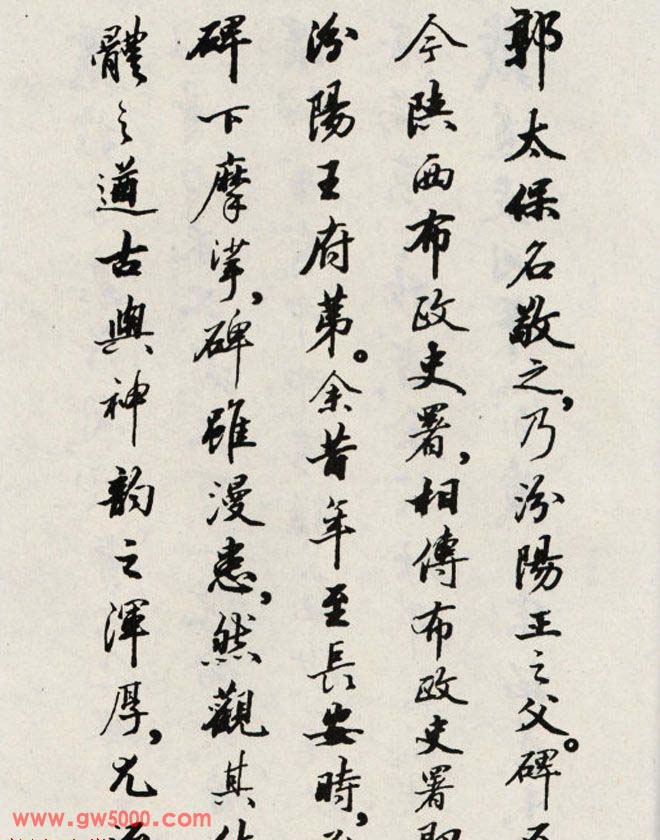 郭太保名敬之，乃汾陽王之父。碑
今陝西布政史署，相傳布政史署
汾陽王府第。余昔年至長安時，
碑下摩挲，碑雖漫患，然觀其
體之遒古與神韵之渾厚，尤
www.gw5000.com